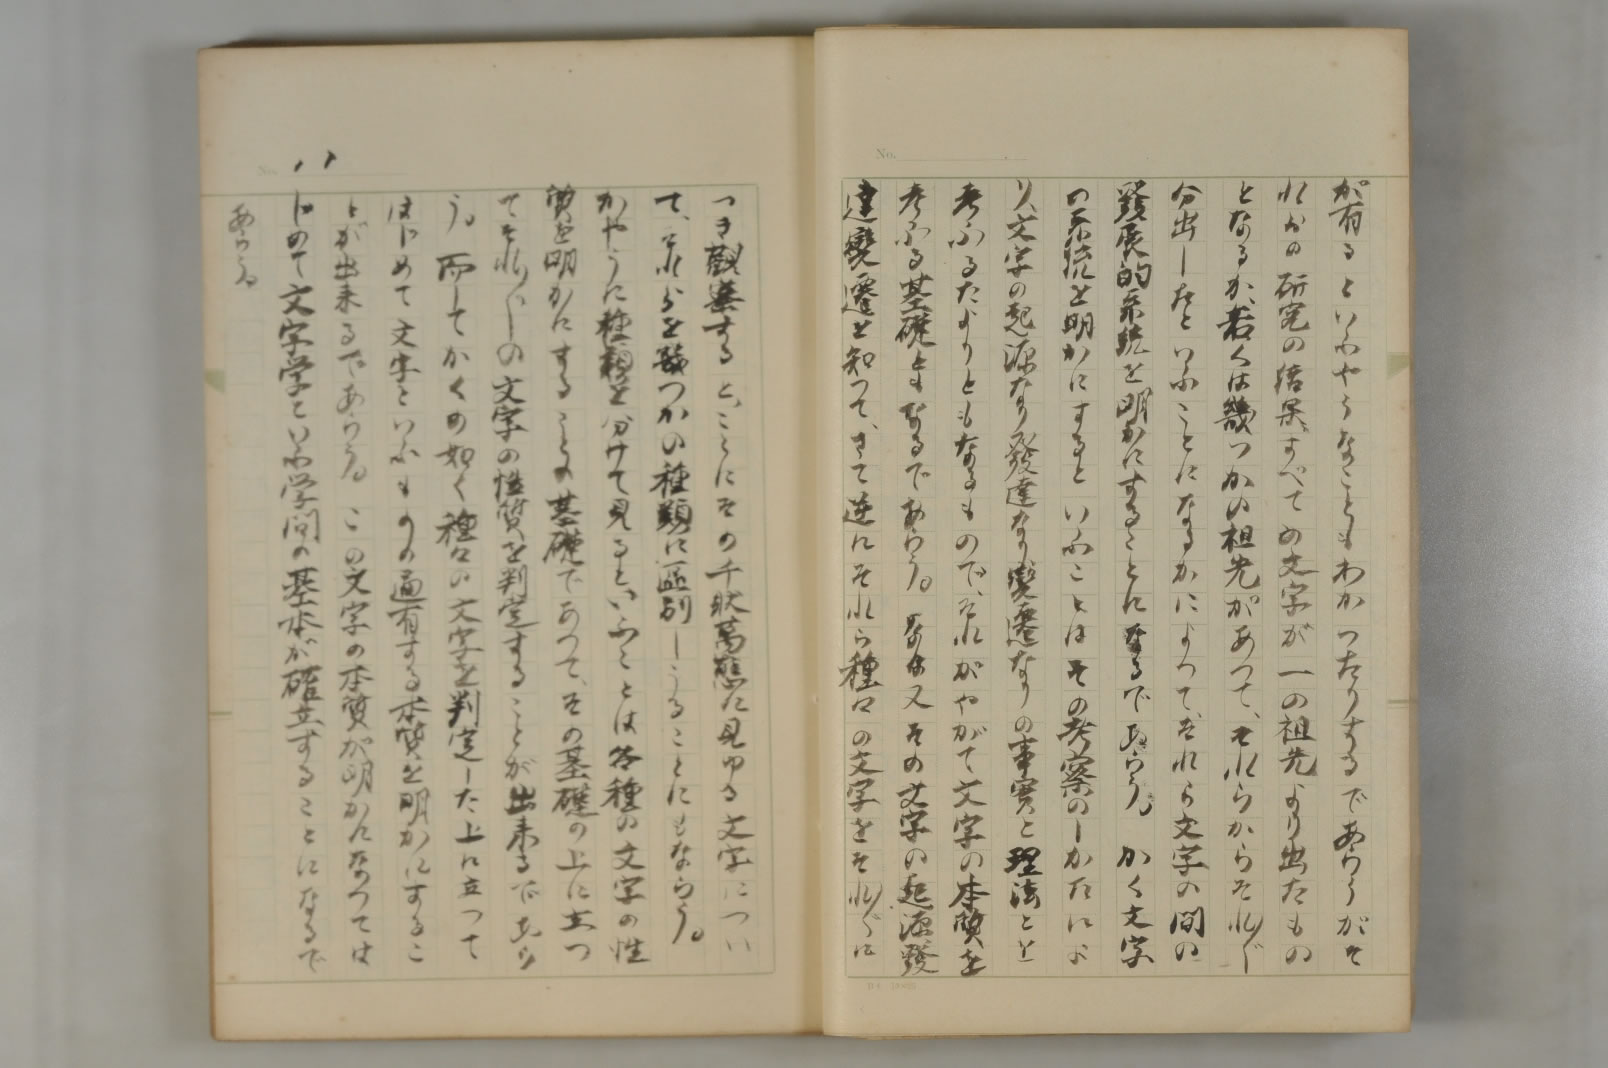 No.
が有るといふやうなこともわかつたりするであらうがそ
れ等の研究の結果すべての文字が一の祖先より出たもの
となるか、若くは幾つかの祖先があつて、それらからそれ〴〵
分出したといふことになるかによつて、それら文字の間の
發展的系統を明かにすることになるであらう。かく文字
の系統を明かにするといふことはその考察のしかたによ
り、文字の起源なり發達なり變遷なりの事實と理法とを
考ふるたよりともなるもので、それがやがて文字の本質を
考ふる基礎ともなるであらう。なほ又その文字の起源發
達變遷を知つて、さて逆にそれら種々の文字をそれ〴〵に
No.
八
つき觀察すると、ことにその千狀萬態に見ゆる文字につい
て、それらを幾つかの種類に區別しうることにもならう。
かやうに種類を分けて見るといふことは各種の文字の性
質を明かにすることの基礎であつて、その基礎の上に立つ
てそれ〴〵の文字の性質を判定することが出来るであら
う。而してかくの如く種々の文字を判定した上に立つて
はじめて文字といふものの通有する本質を明かにするこ
とが出来るであらう。この文字の本質が明かになつては
じめて文字学といふ学問の基本が確立することになるで
あらう。